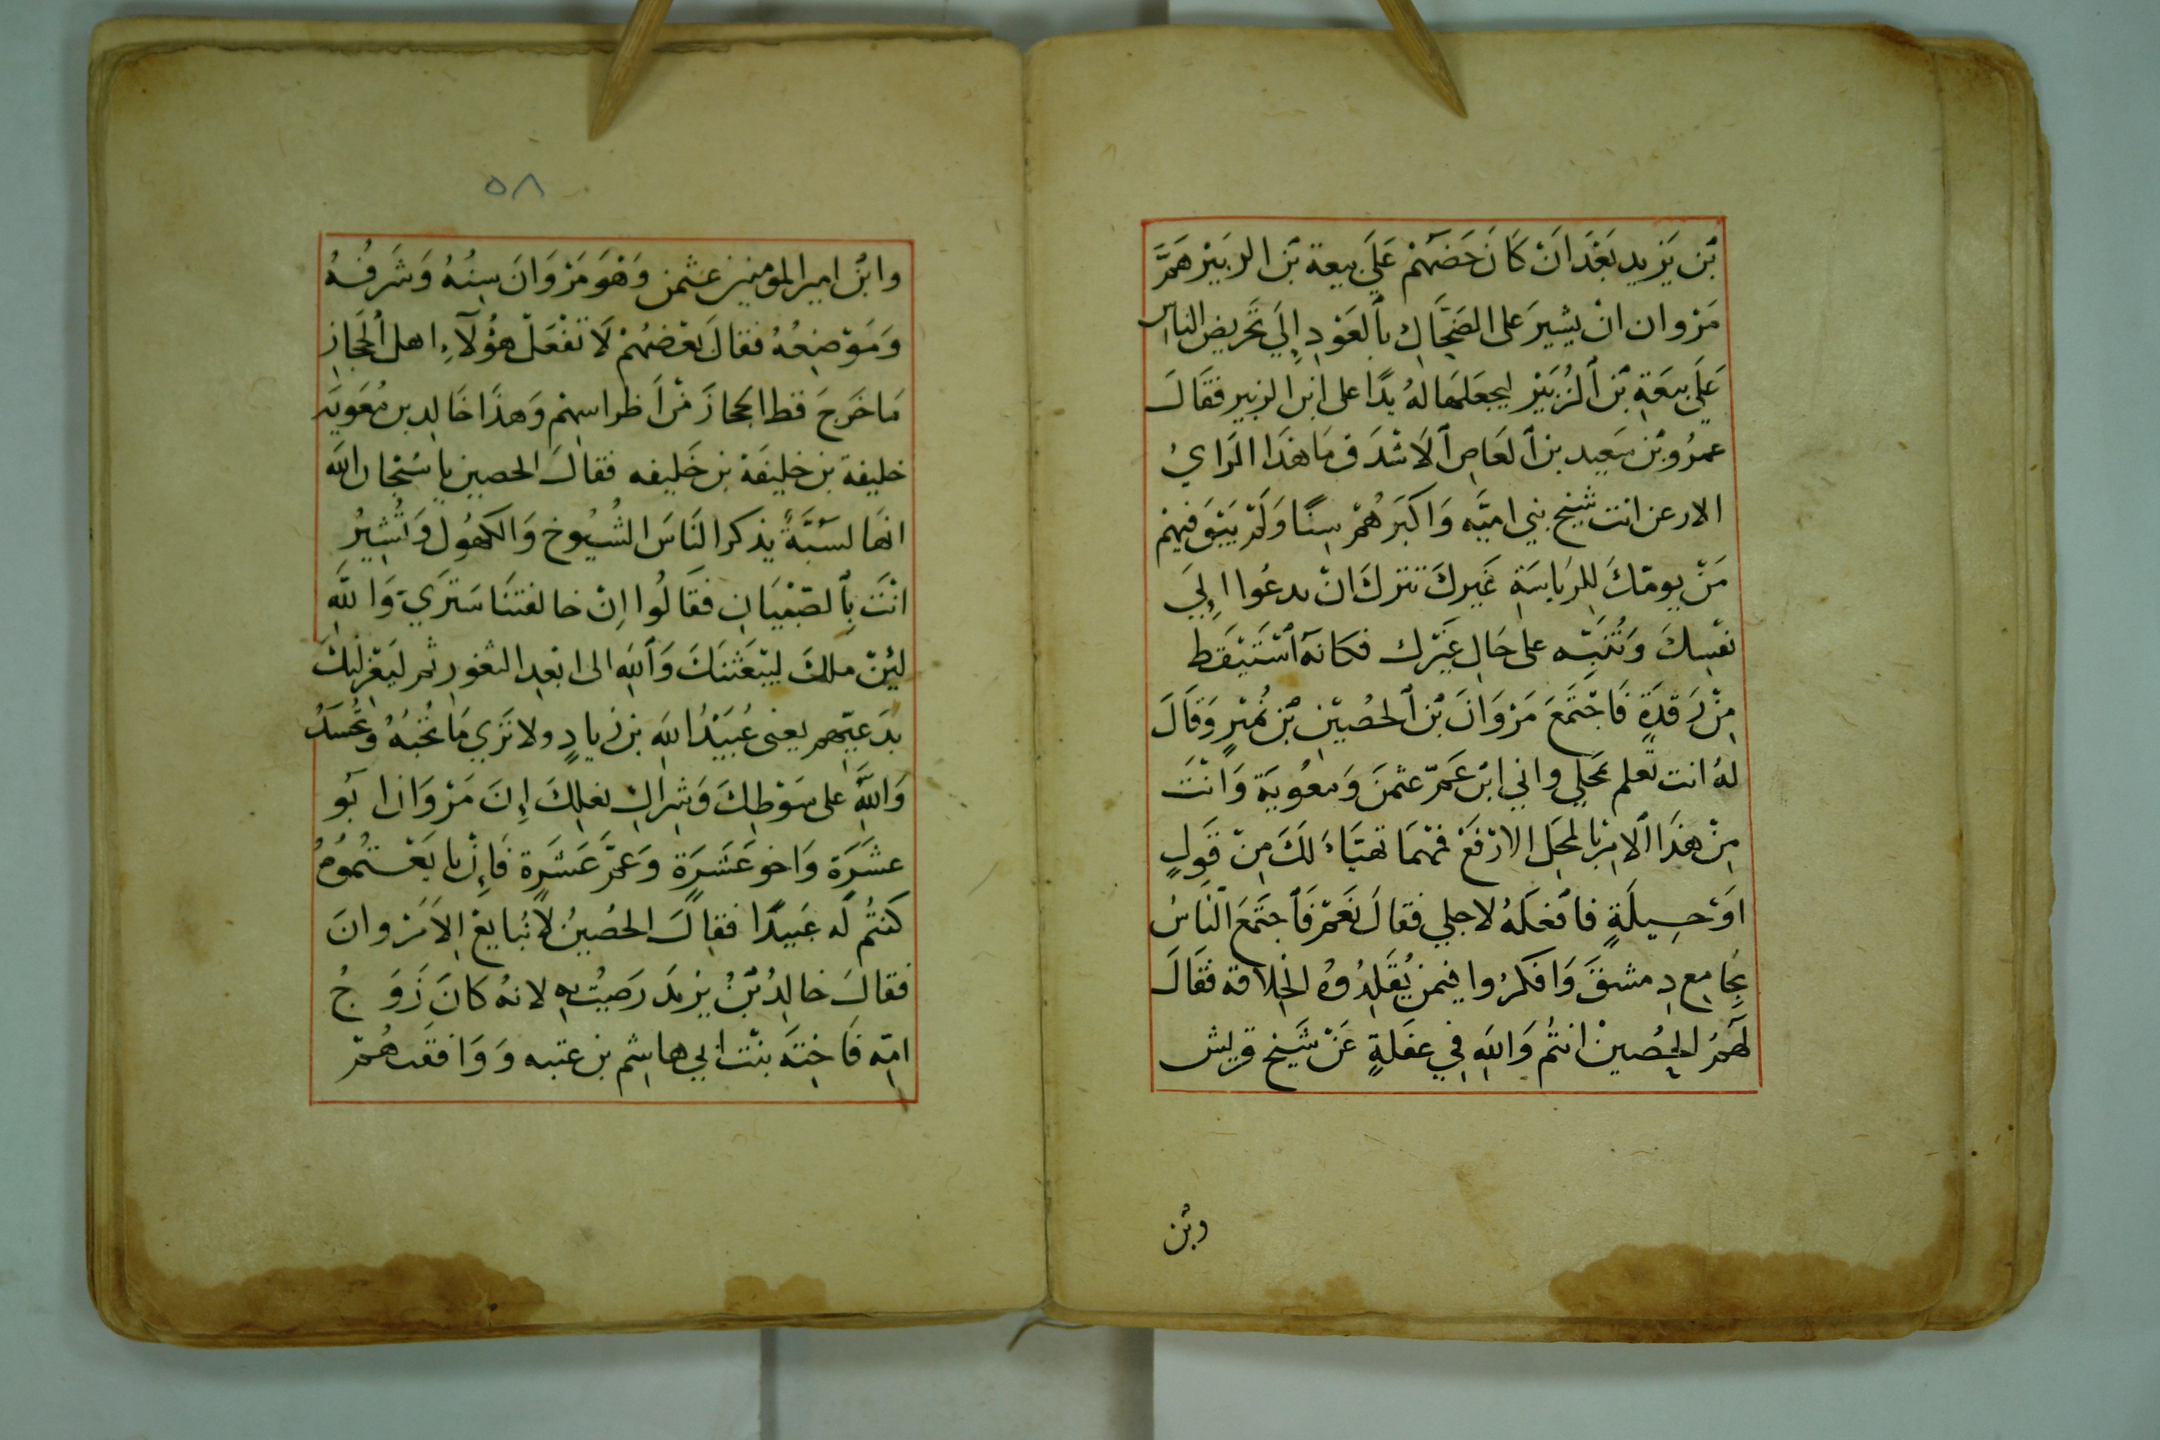 بْن يَزيد بَعْدَ انْ كَانَ حَضَهُمْ عَلَي بيعة بْن الزبَيْر هَمَّ
مَرْوان انْ يشيرَ على الضَحَّاك بالعَوْدِ إِلَي تَحْريض الناس
عَلَي بيعَةِ بْن الزُبَيْر ليجعَلهَا لهُ يدًا على ابن الزبير فقَالَ
عمرُو بْن سَعِيد بن العَاصِ الاَشْدَق مَا هَذَا الرَايُ
الارعن انت شيْخ بني اميَّه وَاكبَرهُمْ سِنًا وَلَمْ يَبْقَ فيهمْ
مَنْ يومّكَ لِلرِيَاسَةِ غَيركَ تتركَ انْ تدعُوا اِلَي
نفْسِكَ وَتُنَبِّه على حَالِ غَيْرك فكانهُ اسْتَيْقَظ
مِنْ رَقدَةٍ فَاجْتَمَعَ مَرْوَانَ بْن الحُصَيْن بْن نُمَيْرٍ وَقَالَ
لهُ انت تعلم مَحَلي واني ابْن عَمّ عثمنَ وَمعُويَة وَانْتَ
مِنْ هَذَا الامْر بالمحَل الارْفَعْ فمَهْمَا تهيَّاءَ لَكَ مِنْ قَولٍ
اوَ حِيلَةٍ فافعَلهُ لاجلي فقالَ نَعَمْ فَاجتَمَعَ النَاسُ
بجَامِع دِمشقَ وَافكرُوا فيمن يُقَلِدُوهُ الخِلافة فقَالَ
لَهمُ الحُصين انتُم وَاللهِ فِي غفَلةٍ عَنْ شَيخ قريش
وبْن
٥٨
وابْن امير المومنين عثمن وَهْوَ مَرْوَانَ سِنُهُ وَشَرفُهُ
وَمَوْضِعُهُ فقالَ بَعْضُهُمْ لَا تَفْعَلْ هؤُلآءِ اهل الحجَازِ
مَا خَرجَ قط الحجازَ مِنْ اَظراسِهِمْ وَهذَا خَالِد بن مُعَويَه
خليفة بن خليفَة بن خَليفه فقالَ الحصين يا سُبْحان الله
انهَا لسَبَّةً يذكر النَاسَ الشُيُوخ وَالكهُول وَتُشِيْرُ
انْتَ بِالصّبْيَانِ فقَالُوا اِنْ خالفتَنَا سَتَرَي وَاللهِ
لئِنْ ملكَ ليَبْعَثنَكَ وَاللهِ الى ابْعِد الثغور ثم ليَعْزِلنكَ
بدَعيّهم يعنى عُبَيْدُ اللهِ بن زيادٍ ولا تَري مَا تُحبُهُ وَتُحْسَدُ
وَاللهِ على سَوْطِكَ وَشِراك نعلِكَ اِنَ مَرْوَانَ ابُو
عشَرَة وَاخو عَشَرَة وَعَمّ عَشَرة فَاِنْ بايَعْتُمُوهُ
كنتُم لَه عَبيدًا فقالَ الحُصينُ لا نُبَايعْ اِلاَ مَرْوانَ
فقالَ خالِدُ بْنُ يزيدَ رَضيتُ بهِ لانهُ كانَ زَوَجُ
امِّهِ فَاخِتَه بنْت ابي هاشِم بن عتبه وَوَافقَهُمْ